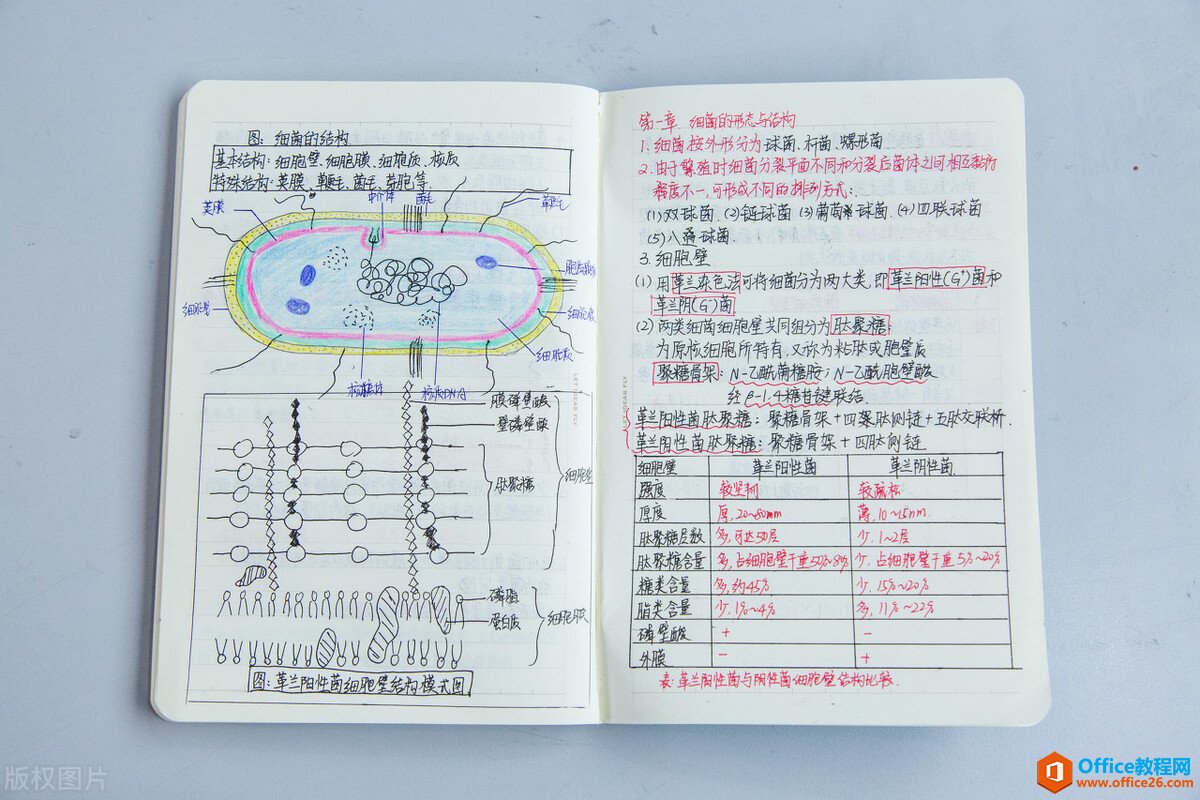 图: 细菌的结构
基本结构: 细胞壁、细胞膜、细胞质、核质
特殊结构: 荚膜、鞭毛、菌毛、芽胞等.
荚膜
中介体
菌毛
鞭毛
细胞壁
细胞膜
细胞质
核糖体
核质DNA
膜磷壁酸
壁磷壁酸
肽聚糖
细胞壁
磷脂
蛋白质
细胞膜
图: 革兰阳性菌细胞壁结构模式图
第一章 细菌的形态与结构
1. 细菌按外形分为球菌、杆菌、螺形菌
2. 由于繁殖时细菌分裂平面不同和分裂后菌体之间相互黏附
程度不一, 可形成不同的排列方式:
(1) 双球菌. (2) 链球菌 (3) 葡萄球菌. (4) 四联球菌
(5) 八叠球菌
3. 细胞壁
(1) 用革兰染色法可将细菌分为两大类, 即革兰阳性(G⁺)菌和
革兰阴(G⁻)菌
(2) 两类细菌细胞壁共同组分为肽聚糖:
为原核细胞所特有, 又称为粘肽或胞壁质
聚糖骨架: N-乙酰葡糖胺; N-乙酰胞壁酸
经β-1.4糖苷键联结.
革兰阳性菌肽聚糖: 聚糖骨架+四聚肽侧链+五肽交联桥.
革兰阳性菌肽聚糖: 聚糖骨架+四肽侧链
细胞壁 革兰阳性菌 革兰阴性菌
强度 较坚韧 较疏松
厚度 厚, 20~80nm 薄, 10~15nm
肽聚糖层数 多, 可达50层 少, 1~2层
肽聚糖含量 多, 占细胞壁干重50%~80% 少, 占细胞壁干重5%~20%
糖类含量 多, 约45% 少, 15%~20%
脂类含量 少, 1%~4% 多, 11%~22%
磷壁酸 + -
外膜 - +
表: 革兰阳性菌与阴性菌细胞壁结构比较.
版权图片
Office教程网
www.office26.com